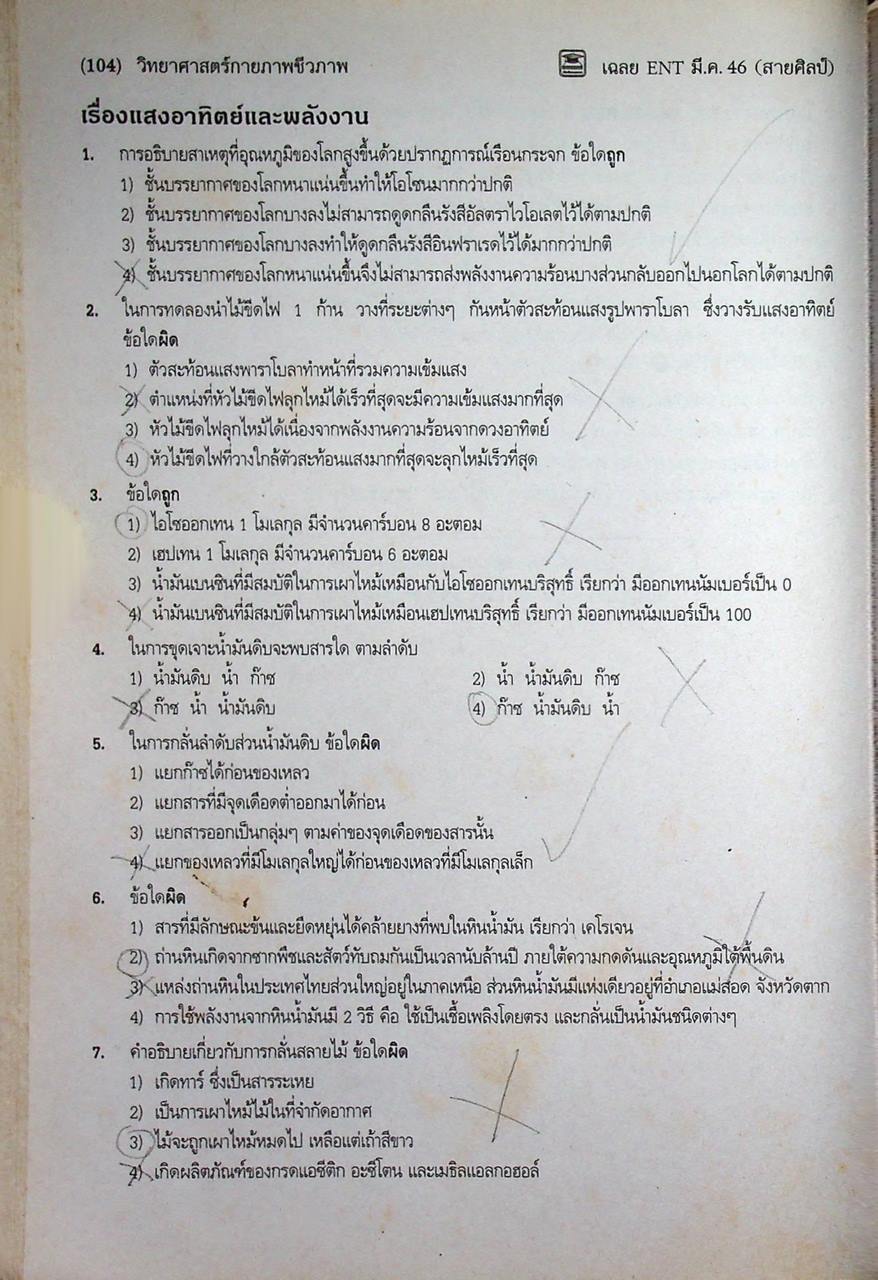 (104) วิทยาศาสตร์กายภาพชีวภาพ เฉลย ENT มี.ค. 46 (สายศิลป์)
เรื่องแสงอาทิตย์และพลังงาน
1. การอธิบายสาเหตุที่อุณหภูมิของโลกสูงขึ้นด้วยปรากฏการณ์เรือนกระจก ข้อใดถูก
1) ชั้นบรรยากาศของโลกหนาแน่นขึ้นทำให้โอโซนมากกว่าปกติ
2) ชั้นบรรยากาศของโลกบางลงไม่สามารถดูดกลืนรังสีอัลตราไวโอเลตไว้ได้ตามปกติ
3) ชั้นบรรยากาศของโลกบางลงทำให้ดูดกลืนรังสีอินฟราเรดไว้ได้มากกว่าปกติ
4) ชั้นบรรยากาศของโลกหนาแน่นขึ้นจึงไม่สามารถส่งพลังงานความร้อนบางส่วนกลับออกไปนอกโลกได้ตามปกติ
2. ในการทดลองนำไม้ขีดไฟ 1 ก้าน วางที่ระยะต่างๆ กันหน้าตัวสะท้อนแสงรูปพาราโบลา ซึ่งวางรับแสงอาทิตย์
ข้อใดผิด
1) ตัวสะท้อนแสงพาราโบลาทำหน้าที่รวมความเข้มแสง
2) ตำแหน่งที่หัวไม้ขีดไฟลุกไหม้ได้เร็วที่สุดจะมีความเข้มแสงมากที่สุด
3) หัวไม้ขีดไฟลุกไหม้ได้เนื่องจากพลังงานความร้อนจากดวงอาทิตย์
4) หัวไม้ขีดไฟที่วางใกล้ตัวสะท้อนแสงมากที่สุดจะลุกไหม้เร็วที่สุด
3. ข้อใดถูก
1) ไอโซออกเทน 1 โมเลกุล มีจำนวนคาร์บอน 8 อะตอม
2) เฮปเทน 1 โมเลกุล มีจำนวนคาร์บอน 6 อะตอม
3) น้ำมันเบนซินที่มีสมบัติในการเผาไหม้เหมือนกับไอโซออกเทนบริสุทธิ์ เรียกว่า มีออกเทนนัมเบอร์เป็น 0
4) น้ำมันเบนซินที่มีสมบัติในการเผาไหม้เหมือนเฮปเทนบริสุทธิ์ เรียกว่า มีออกเทนนัมเบอร์เป็น 100
4. ในการขุดเจาะน้ำมันดิบจะพบสารใด ตามลำดับ
1) น้ำมันดิบ น้ำ ก๊าซ 2) น้ำ น้ำมันดิบ ก๊าซ
3) ก๊าซ น้ำ น้ำมันดิบ 4) ก๊าซ น้ำมันดิบ น้ำ
5. ในการกลั่นลำดับส่วนน้ำมันดิบ ข้อใดผิด
1) แยกก๊าซได้ก่อนของเหลว
2) แยกสารที่มีจุดเดือดต่ำออกมาได้ก่อน
3) แยกสารออกเป็นกลุ่มๆ ตามค่าของจุดเดือดของสารนั้น
4) แยกของเหลวที่มีโมเลกุลใหญ่ได้ก่อนของเหลวที่มีโมเลกุลเล็ก
6. ข้อใดผิด
1) สารที่มีลักษณะข้นและยืดหยุ่นได้คล้ายยางที่พบในหินน้ำมัน เรียกว่า เคโรเจน
2) ถ่านหินเกิดจากซากพืชและสัตว์ทับถมกันเป็นเวลานับล้านปี ภายใต้ความกดดันและอุณหภูมิใต้พื้นดิน
3) แหล่งถ่านหินในประเทศไทยส่วนใหญ่อยู่ในภาคเหนือ ส่วนหินน้ำมันมีแห่งเดียวอยู่ที่อำเภอแม่สอด จังหวัดตาก
4) การใช้พลังงานจากหินน้ำมันมี 2 วิธี คือ ใช้เป็นเชื้อเพลิงโดยตรง และกลั่นเป็นน้ำมันชนิดต่างๆ
7. คำอธิบายเกี่ยวกับการกลั่นสลายไม้ ข้อใดผิด
1) เกิดทาร์ ซึ่งเป็นสารระเหย
2) เป็นการเผาไหม้ไม้ในที่จำกัดอากาศ
3) ไม้จะถูกเผาไหม้หมดไป เหลือแต่เถ้าสีขาว
4) เกิดผลิตภัณฑ์ของกรดแอซีติก อะซีโตน และเมธิลแอลกอฮอล์